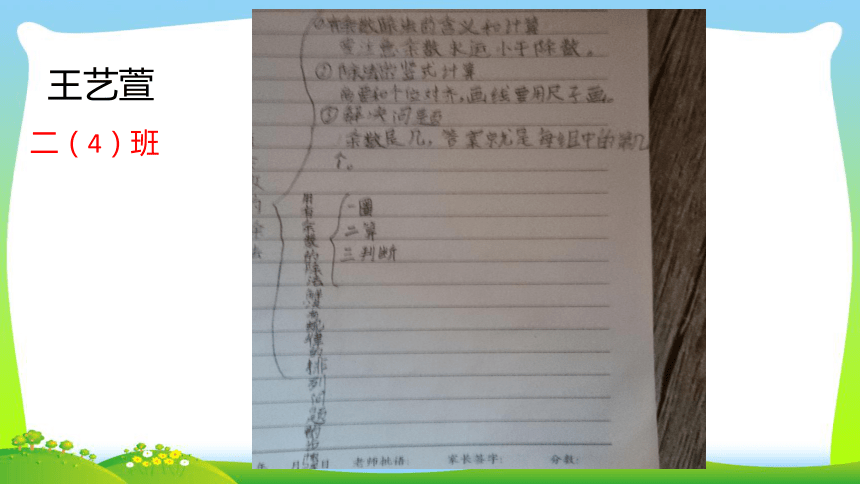 王艺萱
二（4）班
①有余数除法的含义和计算
要注意余数永远小于除数。
②除法的竖式计算
商要和个位对齐，画线要用尺子画。
③解决问题
余数是几，答案就是每组中的第几
个。
用有余数的除法解决有规律的排列问题的
一圈
二算
三判断
年 月 日 老师批语： 家长签字： 分数：